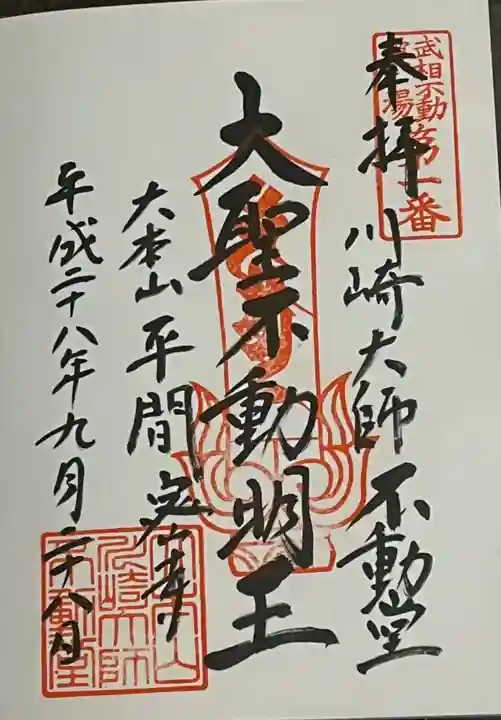 武相不動
霊場第一番
奉拝
川崎大師不動堂
大聖不動明王
大本山平間寺
平成二十八年九月二十八日
大本山
川崎大師
不動堂